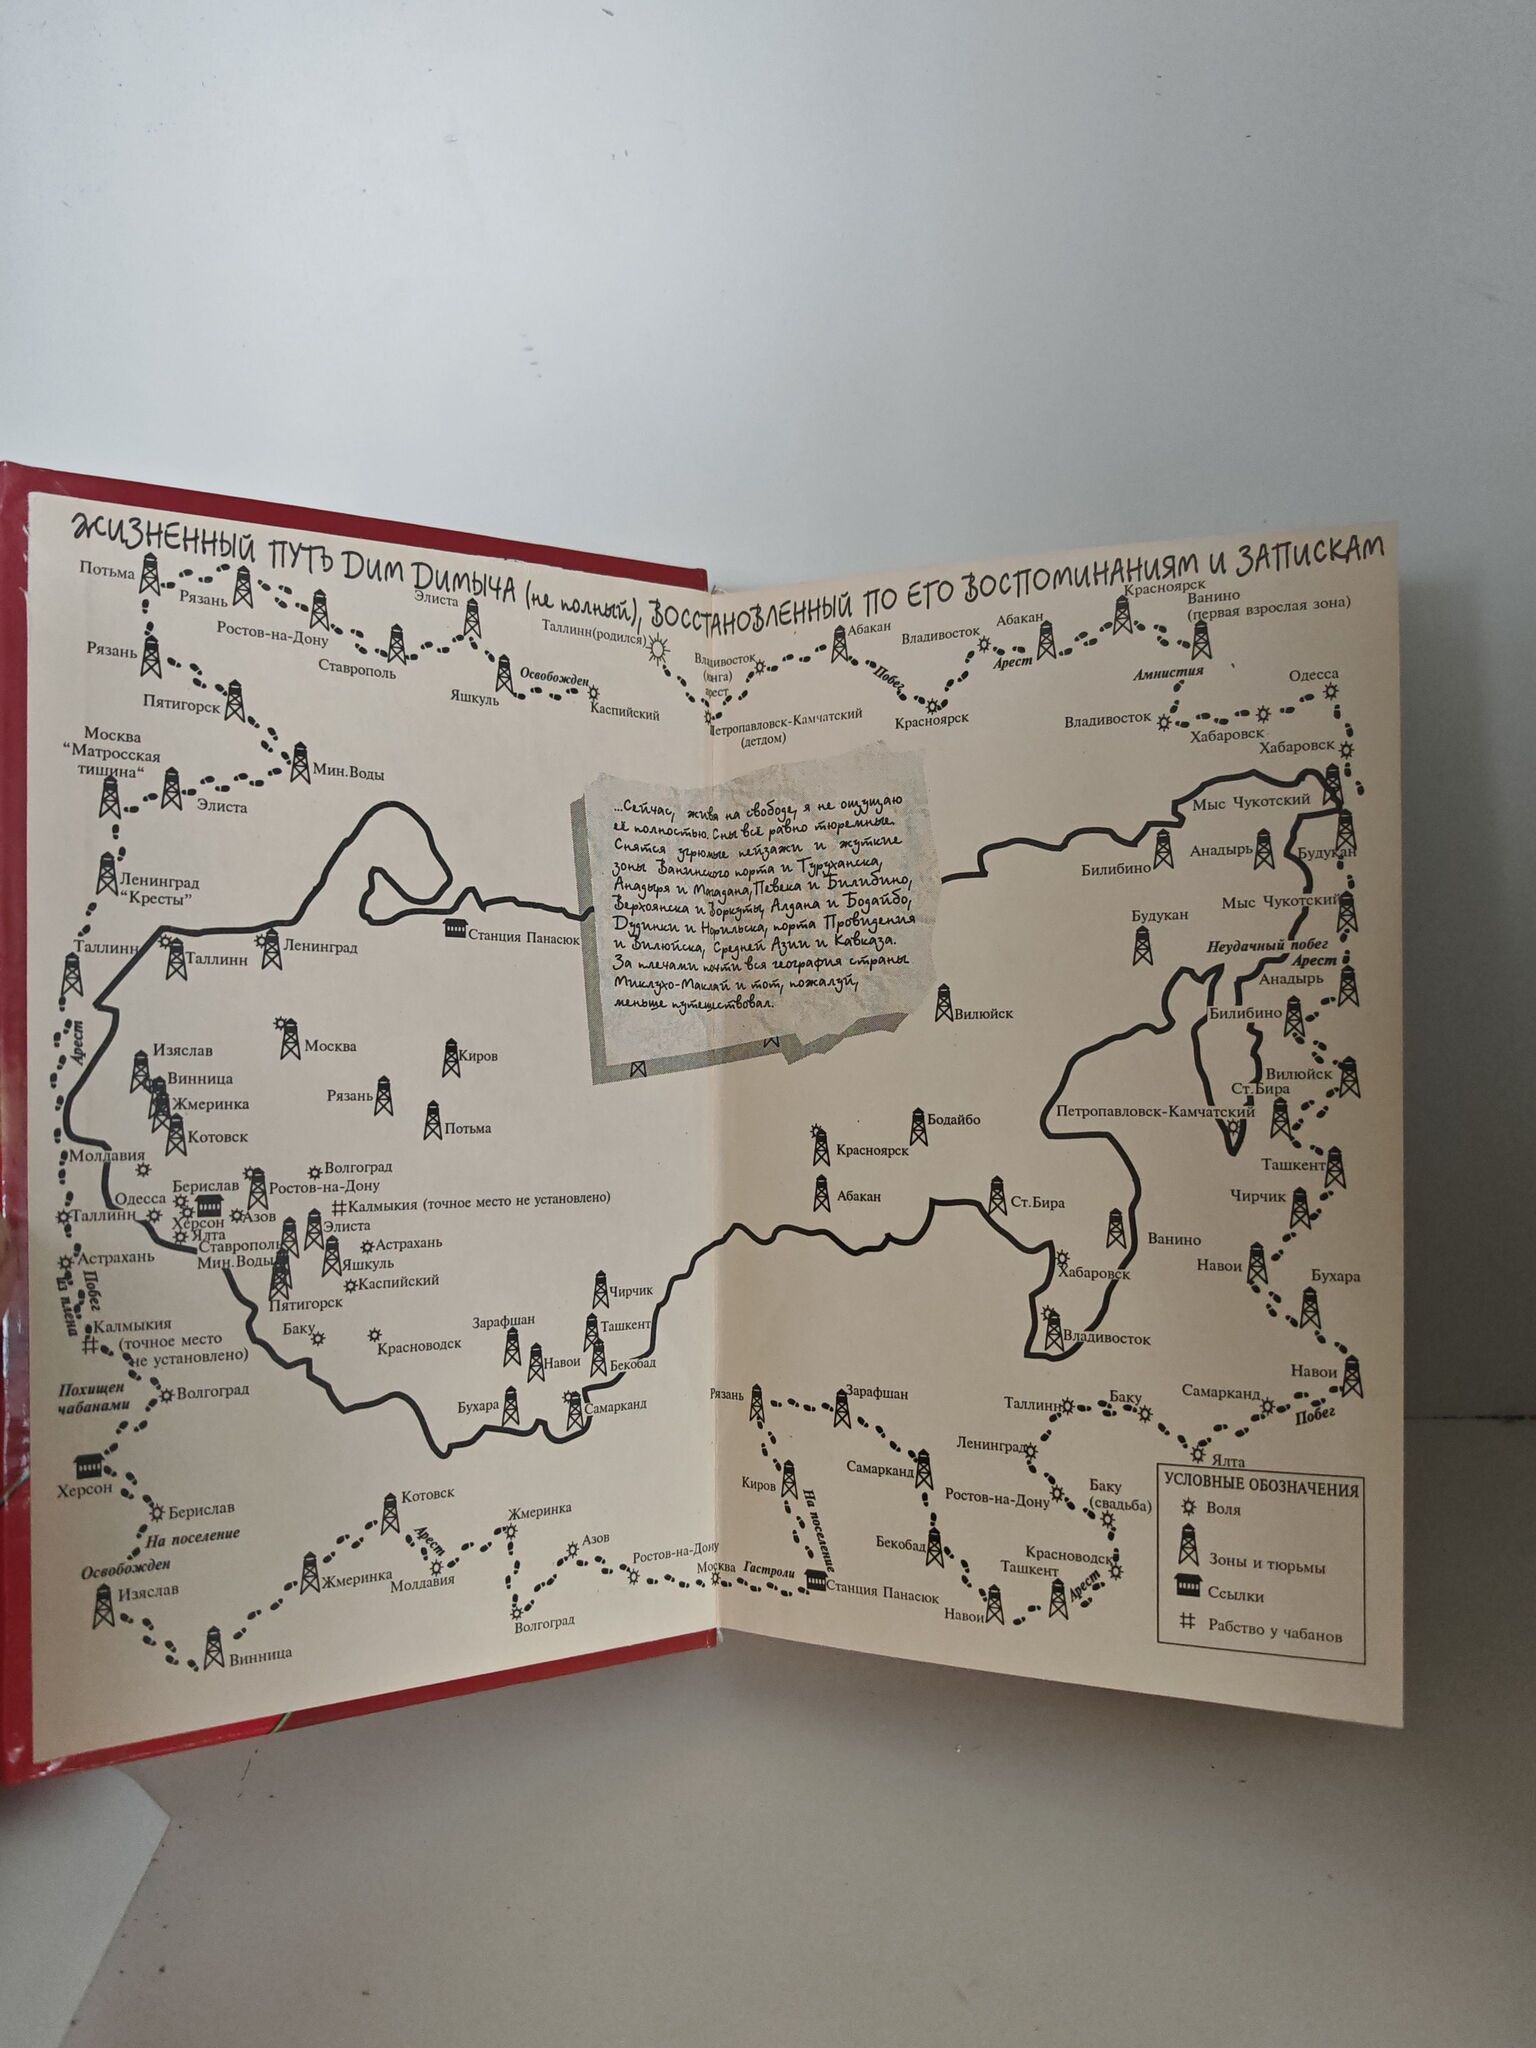 ЖИЗНЕННЫЙ ПУТЬ ДИМ ДИМЫЧА (не полный), ВОССТАНОВЛЕННЫЙ ПО ЕГО ВОСПОМИНАНИЯМ И ЗАПИСКАМ
Потьма
Рязань
Ростов-на-Дону
Ставрополь
Элиста
Яшкуль
Освобожден
Каспийский
Рязань
Пятигорск
Мин.Воды
Элиста
Москва
“Матросская
тишина“
Ленинград
“Кресты”
Таллинн
Арест
Таллинн
Астрахань
Побег
из плена
Калмыкия
(точное место
не установлено)
Похищен
чабанами
Волгоград
Херсон
Берислав
На поселение
Освобожден
Изяслав
Винница
Жмеринка
Котовск
Арест
Молдавия
Жмеринка
Волгоград
Азов
Ростов-на-Дону
Москва
Гастроли
Станция Панасюк
На поселение
Киров
Рязань
Зарафшан
Самарканд
Бекобад
Навои
Ташкент
Арест
Красноводск
Баку
(свадьба)
Ростов-на-Дону
Ленинград
Таллинн
Баку
Ялта
Самарканд
Побег
Навои
Бухара
Навои
Чирчик
Ташкент
Ст.Бира
Вилюйск
Билибино
Анадырь
Неудачный побег
Арест
Мыс Чукотский
Будукан
Мыс Чукотский
Хабаровск
Одесса
Хабаровск
Владивосток
Амнистия
Ванино
(первая взрослая зона)
Красноярск
Абакан
Арест
Владивосток
Красноярск
Побег
Абакан
Владивосток
(юнга)
арест
Петропавловск-Камчатский
(детдом)
Таллинн(родился)
...Сейчас, живя на свободе, я не ощущаю
её полностью. Сны всё равно тюремные.
Снятся угрюмые пейзажи и жуткие
зоны Ванинского порта и Туруханска,
Анадыря и Магадана, Певека и Билибино,
Верхоянска и Воркуты, Алдана и Бодайбо,
Дудинки и Норильска, порта Провидения
и Вилюйска, Средней Азии и Кавказа.
За плечами почти вся география страны
Миклухо-Маклай и тот, пожалуй,
меньше путешествовал.
Станция Панасюк
Таллинн
Ленинград
Москва
Киров
Рязань
Потьма
Изяслав
Винница
Жмеринка
Котовск
Молдавия
Одесса
Берислав
Херсон
Ялта
Азов
Ростов-на-Дону
Волгоград
Калмыкия (точное место не установлено)
Ставрополь
Элиста
Мин.Воды
Яшкуль
Астрахань
Каспийский
Пятигорск
Баку
Красноводск
Зарафшан
Навои
Бухара
Чирчик
Ташкент
Бекобад
Самарканд
Билибино
Анадырь
Будукан
Вилюйск
Петропавловск-Камчатский
Бодайбо
Красноярск
Абакан
Ст.Бира
Ванино
Хабаровск
Владивосток
УСЛОВНЫЕ ОБОЗНАЧЕНИЯ
Воля
Зоны и тюрьмы
Ссылки
Рабство у чабанов